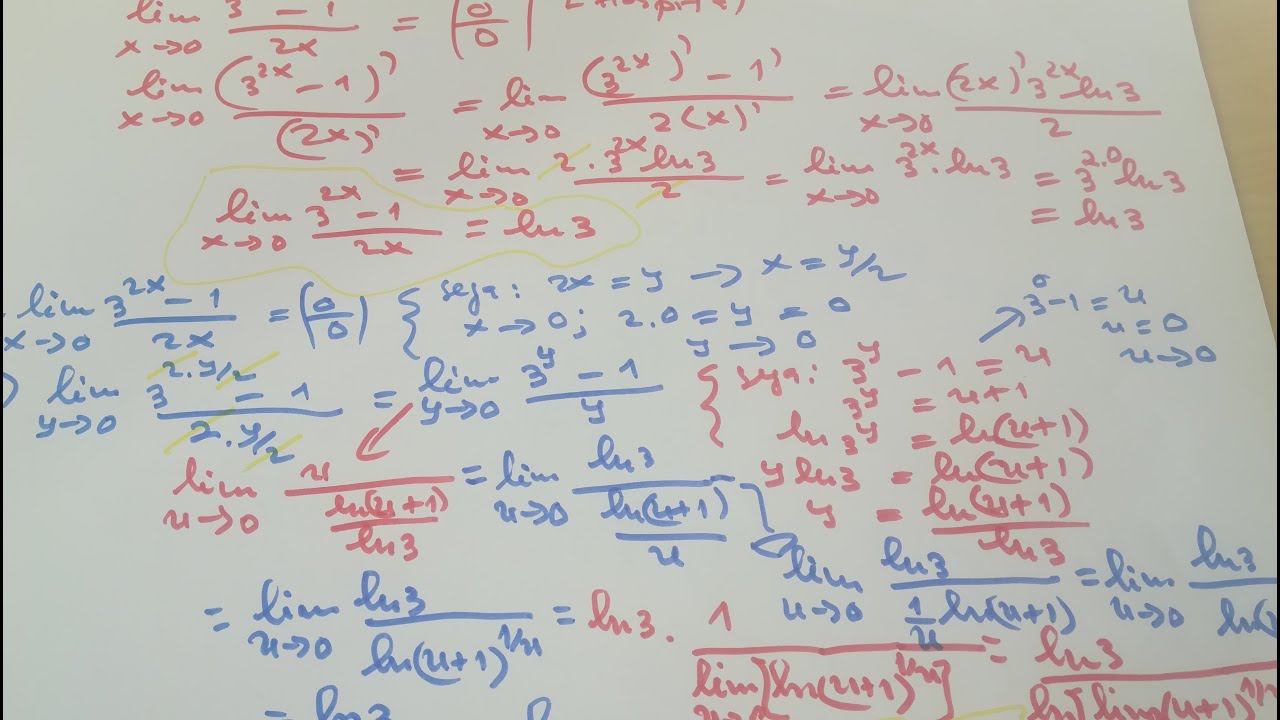 lim x→0 3 - 1 / 2x = (0/0)
lim x→0 (3^{2x} - 1)' / (2x)' = lim x→0 (3^{2x})' - 1' / 2(x)' = lim x→0 (2x)' 3^{2x} ln3 / 2
= lim x→0 2·3^{2x} ln3 / 2 = lim x→0 3^{2x}·ln3 = 3^{2.0} ln3
lim x→0 3^{2x} - 1 / 2x = ln3
= ln3
lim x→0 3^{2x} - 1 / 2x = (0/0) { seja: 2x = y → x = y/2
x → 0; 2.0 = y = 0
y → 0
3^0 - 1 = u
u = 0
u → 0
) lim y→0 3^{2.y/2} - 1 / 2.y/2 = lim y→0 3^y - 1 / y { seja: 3^y - 1 = u
3^y = u+1
ln 3^y = ln(u+1)
y ln3 = ln(u+1)
y = ln(u+1) / ln3
lim u→0 u / (ln(u+1) / ln3) = lim u→0 ln3 / (ln(u+1) / u)
lim u→0 ln3 / (1/u ln(u+1)) = lim u→0 ln3 / ln(
= lim u→0 ln3 / ln(u+1)^{1/u} = ln3 . 1 / lim [ln(u+1)^{1/u}] = ln3 / ln[lim(u+1)^{1/
= ln3